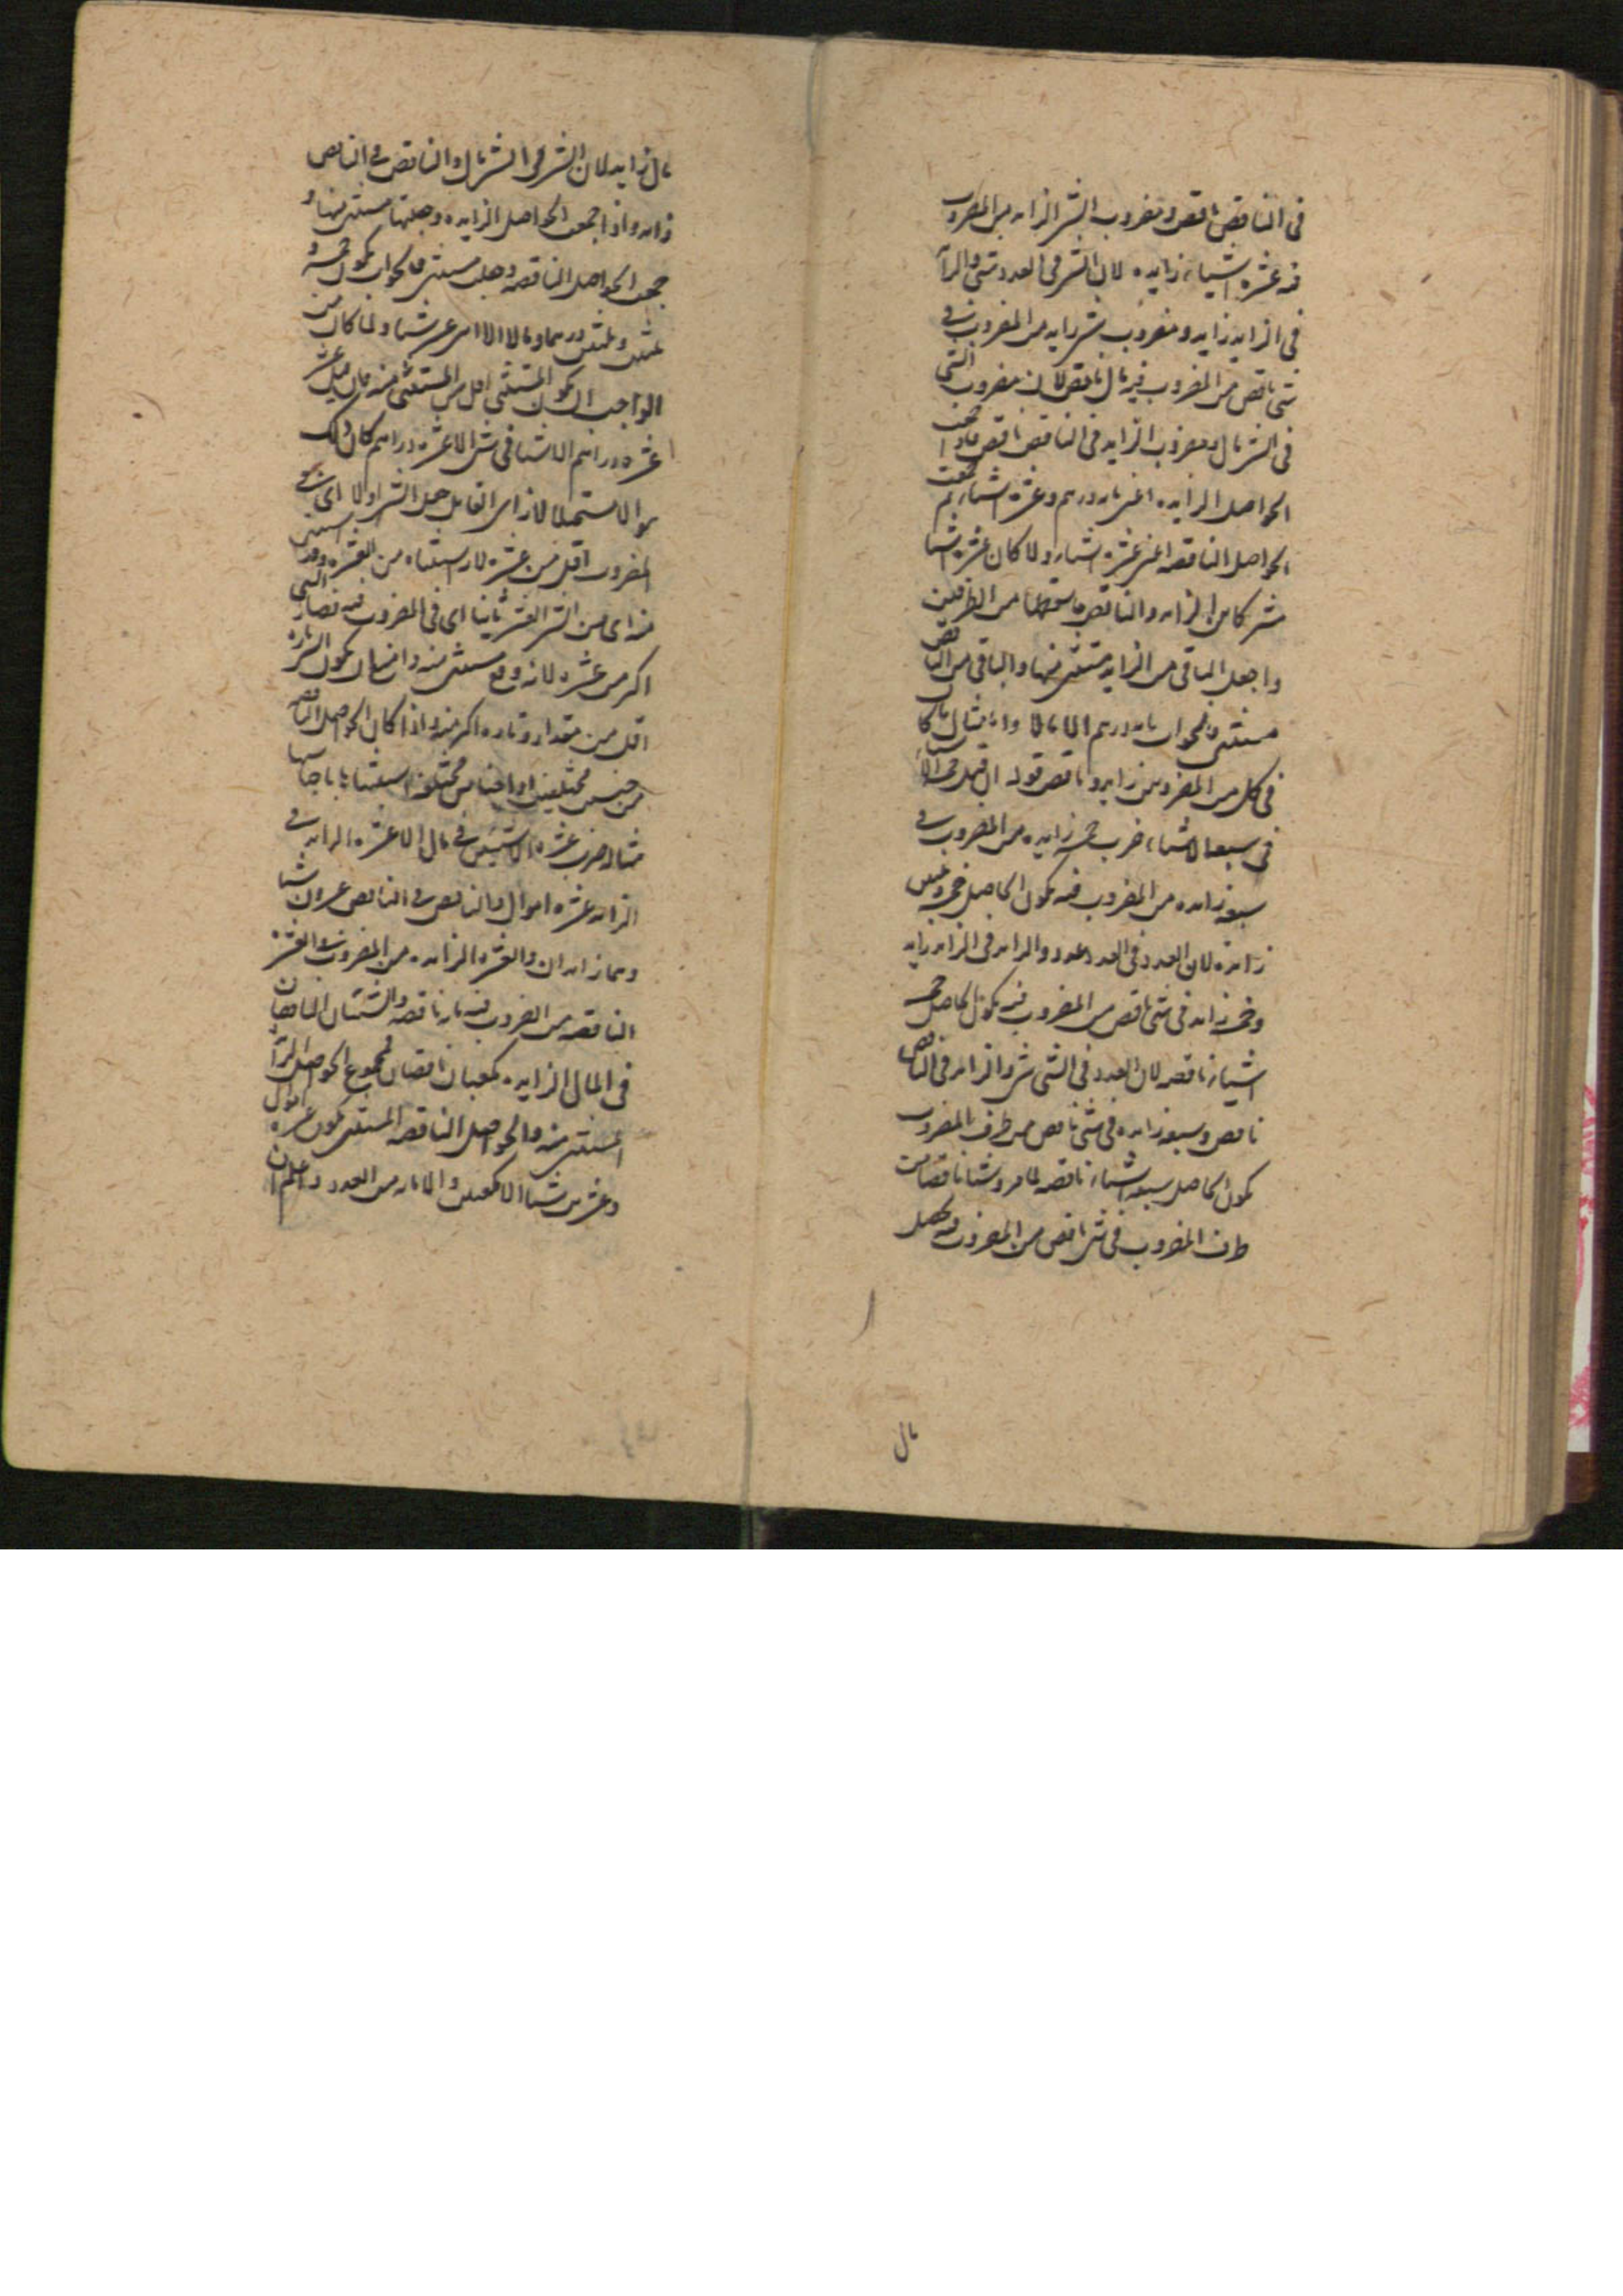 في الناقص ناقص ومضروب الشئ الزايد من المضروب
فيه عشرة اشياء زايدة لان الشئ في العدد شئ والزا
في الزايد زايد ومضروب شئ زايد من المضروب في
شئ ناقص من المضروب فيه مال ناقص لان مضروب الشئ
في الشئ مال ومضروب الزايد في الناقص ناقص فاذا جمعت
الحواصل الزايدة اعني مايه درهم وعشرة اشياء ثم جمعت
الحواصل الناقصه اعني عشرة اشياء ولما كان عشرة اشيا
مشتركا بين الزايد والناقص فاسقطها من الطرفين
واجعل الباقي من الزايد مستثنى منها والباقي من الناقص
مستثنى فالجواب مايه درهم الا مالا واما مثال ما كان
في كل من المضروبين زايد وناقص قوله ان قيل خمسة الا شيئا
في سبعة الا شيئا، ضرب خمسة زايده من المضروب في
سبعة زايده من المضروب فيه يكون الحاصل خمسة وثلثين
زايدة لان العدد في العدد عدد والزايد في الزايد زايد
وخمسة زايد في شئ ناقص من المضروب فيه يكون الحاصل خمسة
اشياء ناقصه لان العدد في الشئ شئ والزايد في الناقص
ناقص وسبعة زايده في شئ ناقص من طرف المضروب
يكون الحاصل سبعة اشياء ناقصه لما مر وشيئا ناقصا من
طرف المضروب في شئ ناقص من المضروب فيه يحصل
مال
مال زايد لان الشئ في الشئ مال والناقص في الناقص
زايد واذا جمعت الحواصل الزايده وجعلتها مستثنى منها و
جمعت الحواصل الناقصه وجعلت مستثنى فالجواب يكون خمسة و
ثلثين درهما ومالا الا اثنى عشر شيئا ولما كان من
الواجب ان يكون المستثنى اقل من المستثنى منه فان قيل عشر
عشرة دراهم الا شيئا في شئ الا عشرة دراهم كان ذلك
سوالا مستحيلا لان اي القايل جعل الشئ اولا اي في
المضروب اقل من عشرة لاستثناه من العشرة وقد استثنى
منه اي من الشئ العشرة ثانيا اي في المضروب فيه فصار الشئ
اكثر من عشرة لانه وقع مستثنى منه وامتناع كون الشئ تارة
اقل من مقدار وتارة اكثر منه واذا كان الحواصل الناقص
من جنسين مختلفين او اجناس مختلفه استثنيتها باجناسها
مثاله ضرب عشرة الا شيئين في مال الا عشرة الزايد في
الزايد عشرة اموال والناقص في الناقص عشرون شيئا
وهما زايدان والعشرة الزايده من المضروب في العشرة
الناقصه من المضروب فيه مايه ناقصه والشيئان الناقصان
في المال الزايد مكعبان ناقصان فمجموع الحواصل الزا
المستثنى منه والحواصل الناقصه المستثنى يكون عشرة اموال
وعشرين شيئا الا مكعبين والا مايه من العدد واعلم ان